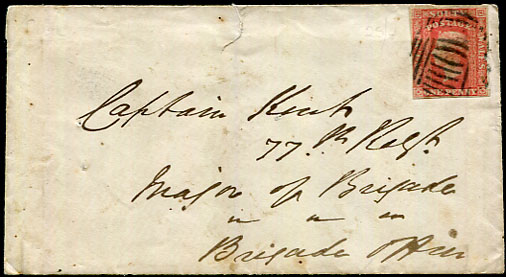 N. SOUTH
POSTAGE
WALES
ONE PENNY
Captain Kent
77th Regt.
Major of Brigade
" " "
Brigade Office